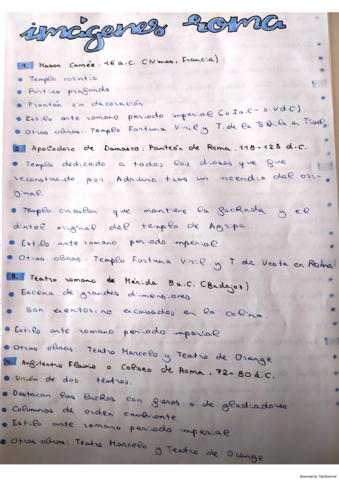 imágenes roma
1. Maison Carrée, 16 a.C. (Nimes, Francia)
• Templo corintio
• Pórtico profundo
• Frontón sin decoración
• Estilo arte romano periodo imperial (s.I a.C - s.V d.C)
• Otras obras: Templo Fortuna Viril y T. de la Sibila en Tívoli
2. Apolodoro de Damasco: Panteón de Roma, 118-128 d.C.
• Templo dedicado a todos los dioses que fue
reconstruido por Adriano tras un incendio del ori-
ginal.
• Templo circular que mantiene la fachada y el
dintel original del templo de Agripa.
• Estilo arte romano periodo imperial
• Otras obras: Templo Fortuna Viril y T. de Vesta en Roma
3. Teatro romano de Mérida 8 a.C. (Badajoz)
• Escena de grandes dimensiones
• Son exentos: no excavados en la colina.
• Estilo arte romano periodo imperial
• Otras obras: Teatro Marcelo y Teatro de Orange
4. Anfiteatro Flavio o Coliseo de Roma, 72-80 d.C.
• Unión de dos teatros.
• Destacan las luchas con fieras o de gladiadores
• Columnas de orden cambiante.
• Estilo arte romano periodo imperial
• Otras obras: Teatro Marcelo y Teatro de Orange
Scanned by TapScanner